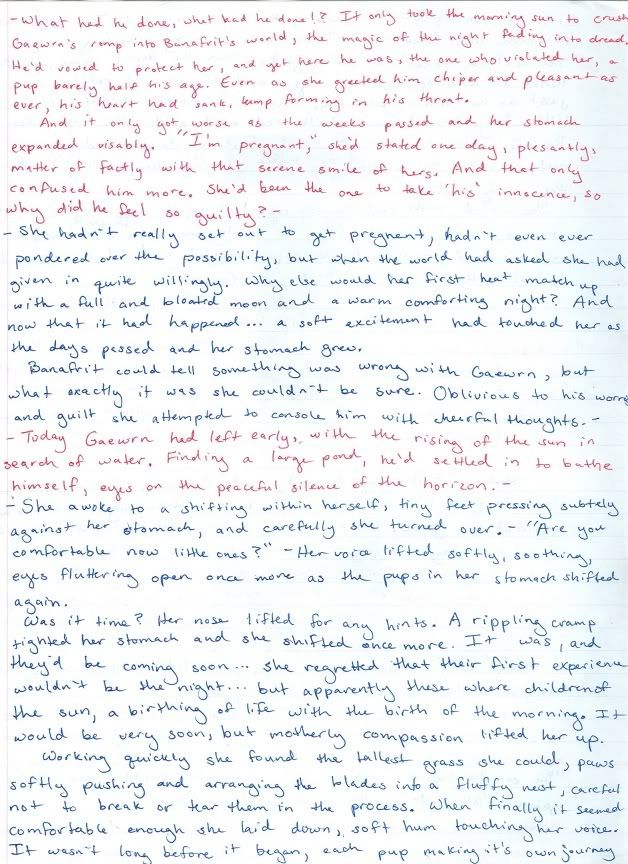 -What had he done, what had he done!? It only took the morning sun to crush
Gaewrn's romp into Banafrit's world, the magic of the night fading into dread.
He'd vowed to protect her, and yet here he was, the one who violated her, a
pup barely half his age. Even as she greeted him chiper and pleasant as
ever, his heart had sank, lump forming in his throat.
And it only got worse as the weeks passed and her stomach
expanded visably. "I'm pregnant," she'd stated one day, plesantly,
matter of factly with that serene smile of hers. And that only
confused him more. She'd been the one to take 'his' innocence, so
why did he feel so guilty? -
- She hadn't really set out to get pregnant, hadn't even ever
pondered over the possibility, but when the world had asked she had
given in quite willingly. Why else would her first heat match up
with a full and bloated moon and a warm comforting night? And
now that it had happened... a soft excitement had touched her as
the days passed and her stomach grew.
Banafrit could tell something was wrong with Gaewrn, but
what exactly it was she couldn't be sure. Oblivious to his worry
and guilt she attempted to console him with cheerful thoughts. -
- Today Gaewrn had left early, with the rising of the sun in
search of water. Finding a large pond, he'd settled in to bathe
himself, eyes on the peaceful silence of the horizon. -
- She awoke to a shifting within herself, tiny feet pressing subtely
against her stomach, and carefully she turned over. - "Are you
comfortable now little ones?" - Her voice lifted softly, soothing,
eyes fluttering open once more as the pups in her stomach shifted
again.
Was it time? Her nose lifted for any hints. A rippling cramp
tighted her stomach and she shifted once more. It was, and
they'd be coming soon... she regretted that their first experience
wouldn't be the night... but apparently these where children of
the sun, a birthing of life with the birth of the morning. It
would be very soon, but motherly compassion lifted her up.
Working quickly she found the tallest grass she could, paws
softly pushing and arranging the blades into a fluffy nest, careful
not to break or tear them in the process. When finally it seemed
comfortable enough she laid down, soft hum touching her voice.
It wasn't long before it began, each pup making it's own journey